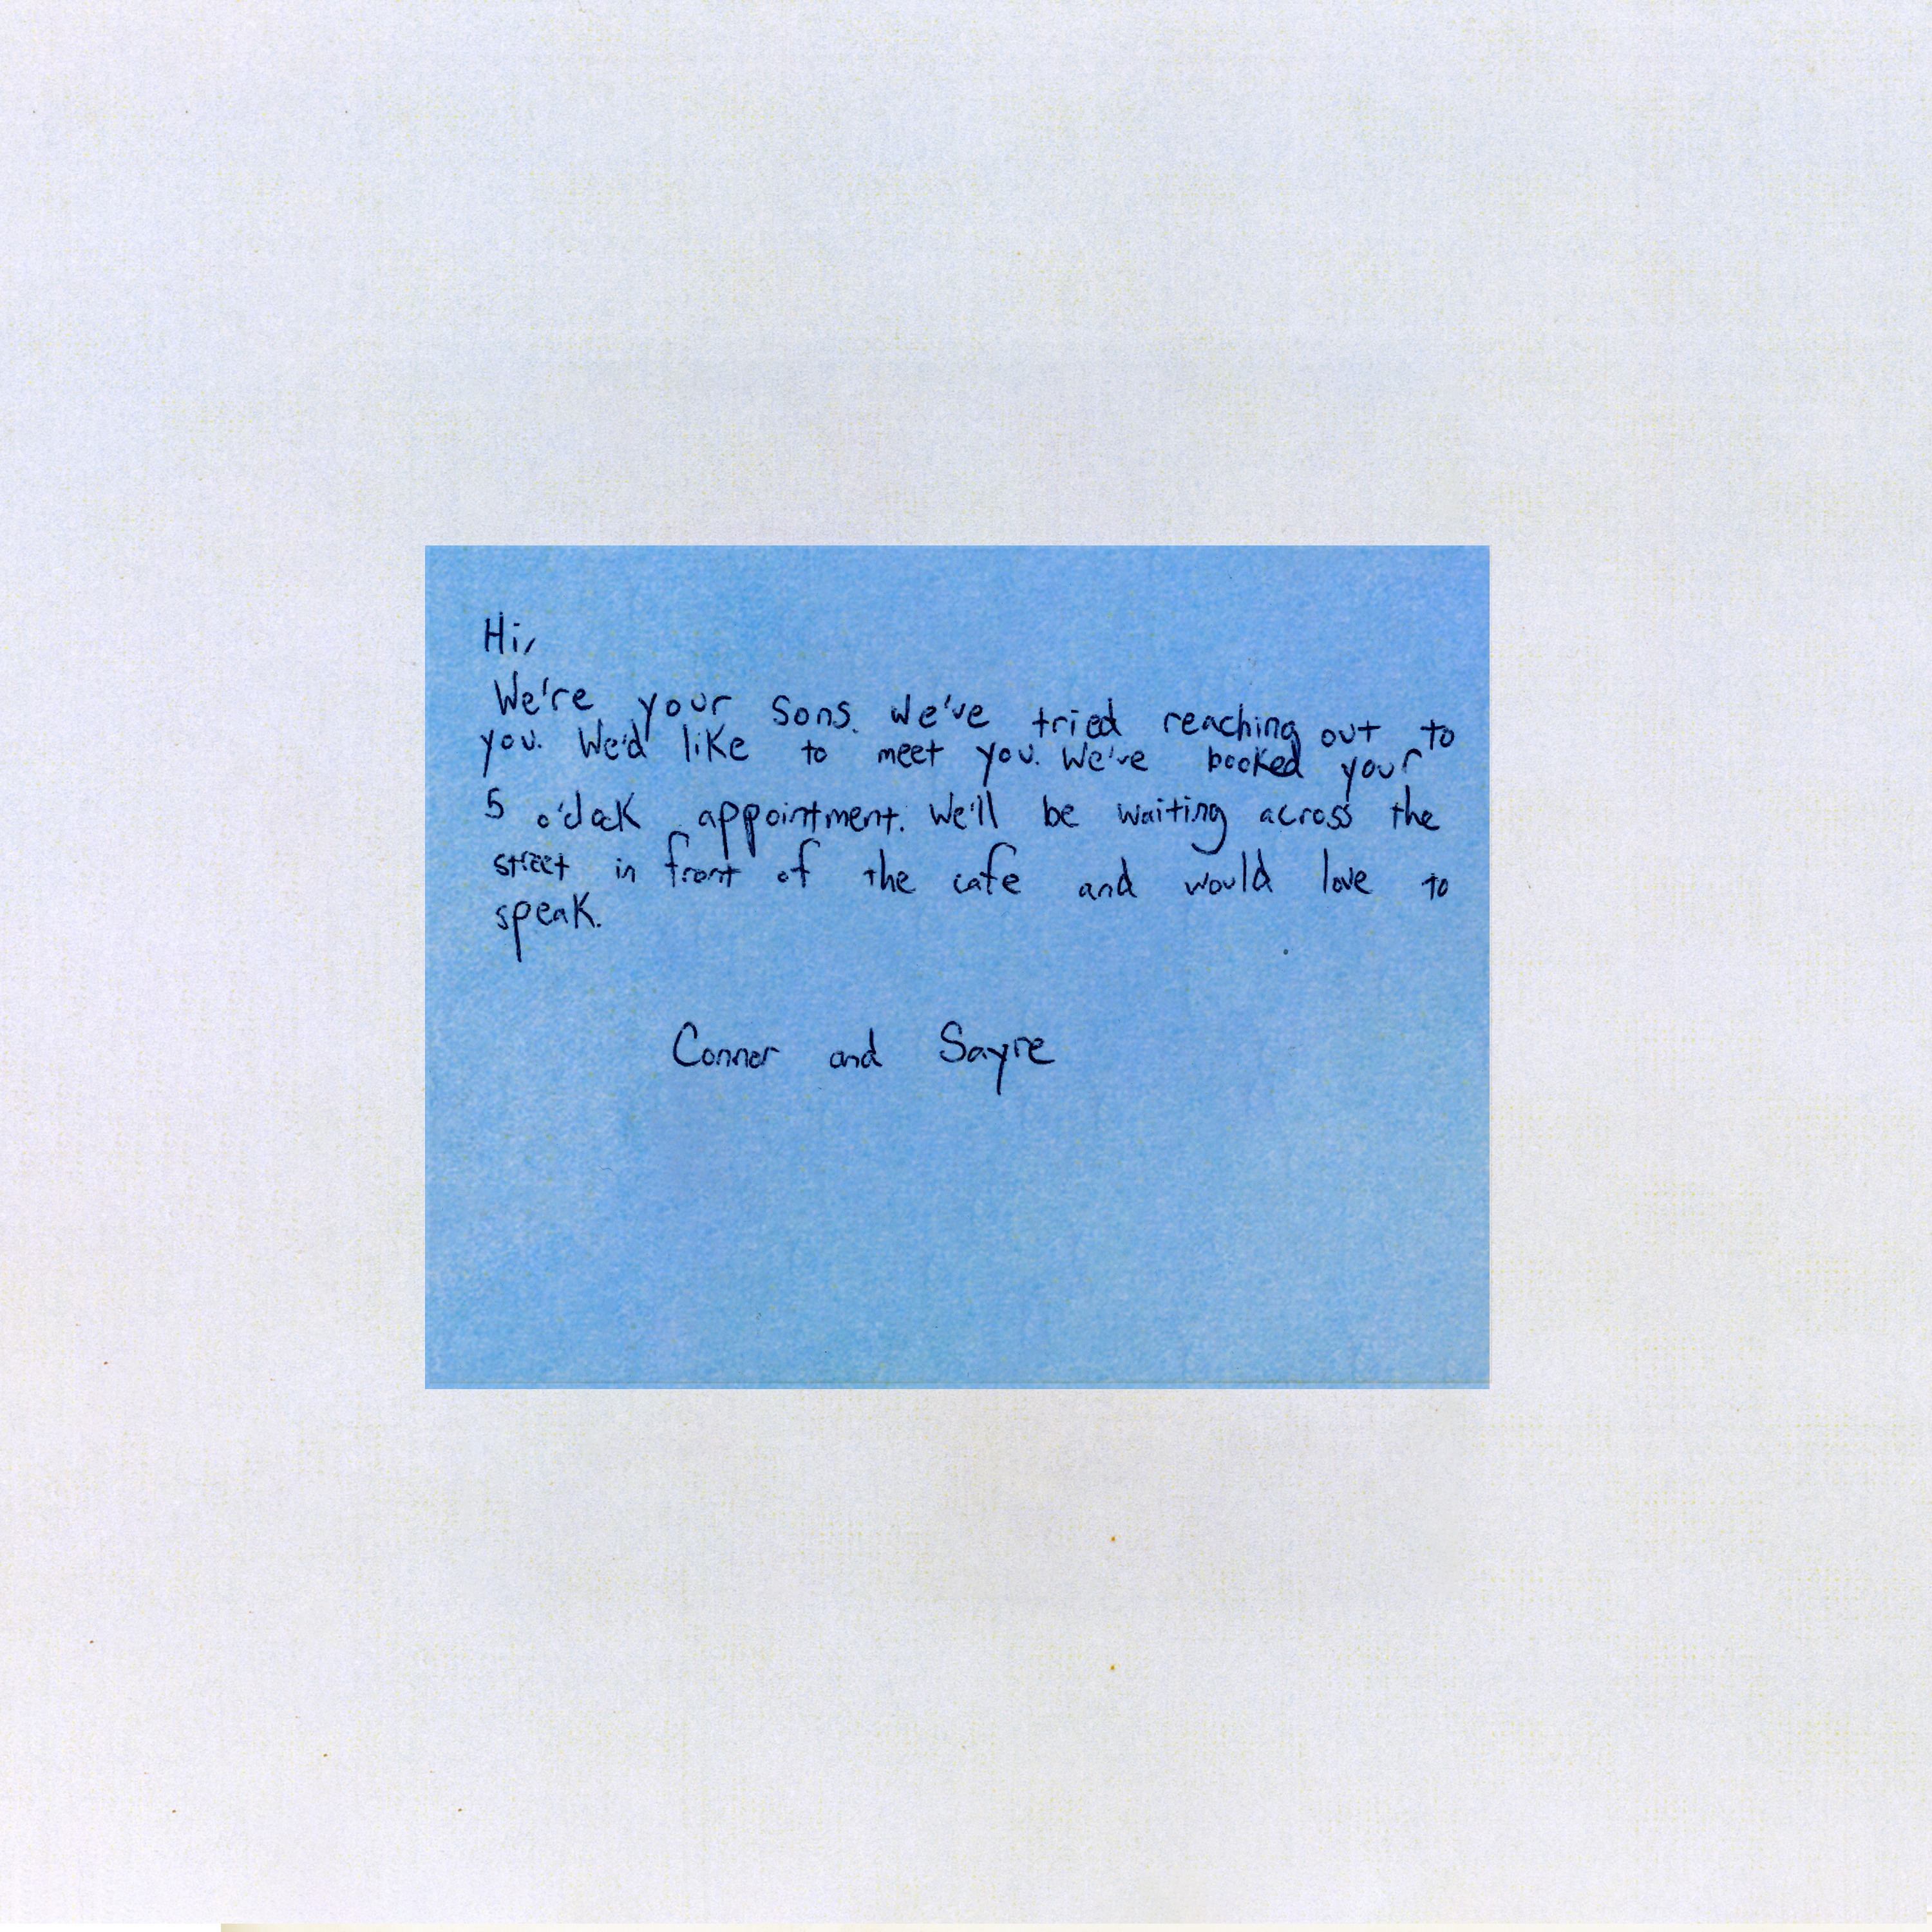 Hi,
We're your sons. We've tried reaching out to
you. We'd like to meet you. We've booked your
5 o'clock appointment. We'll be waiting across the
street in front of the cafe and would love to
speak.
Connor and Sayre